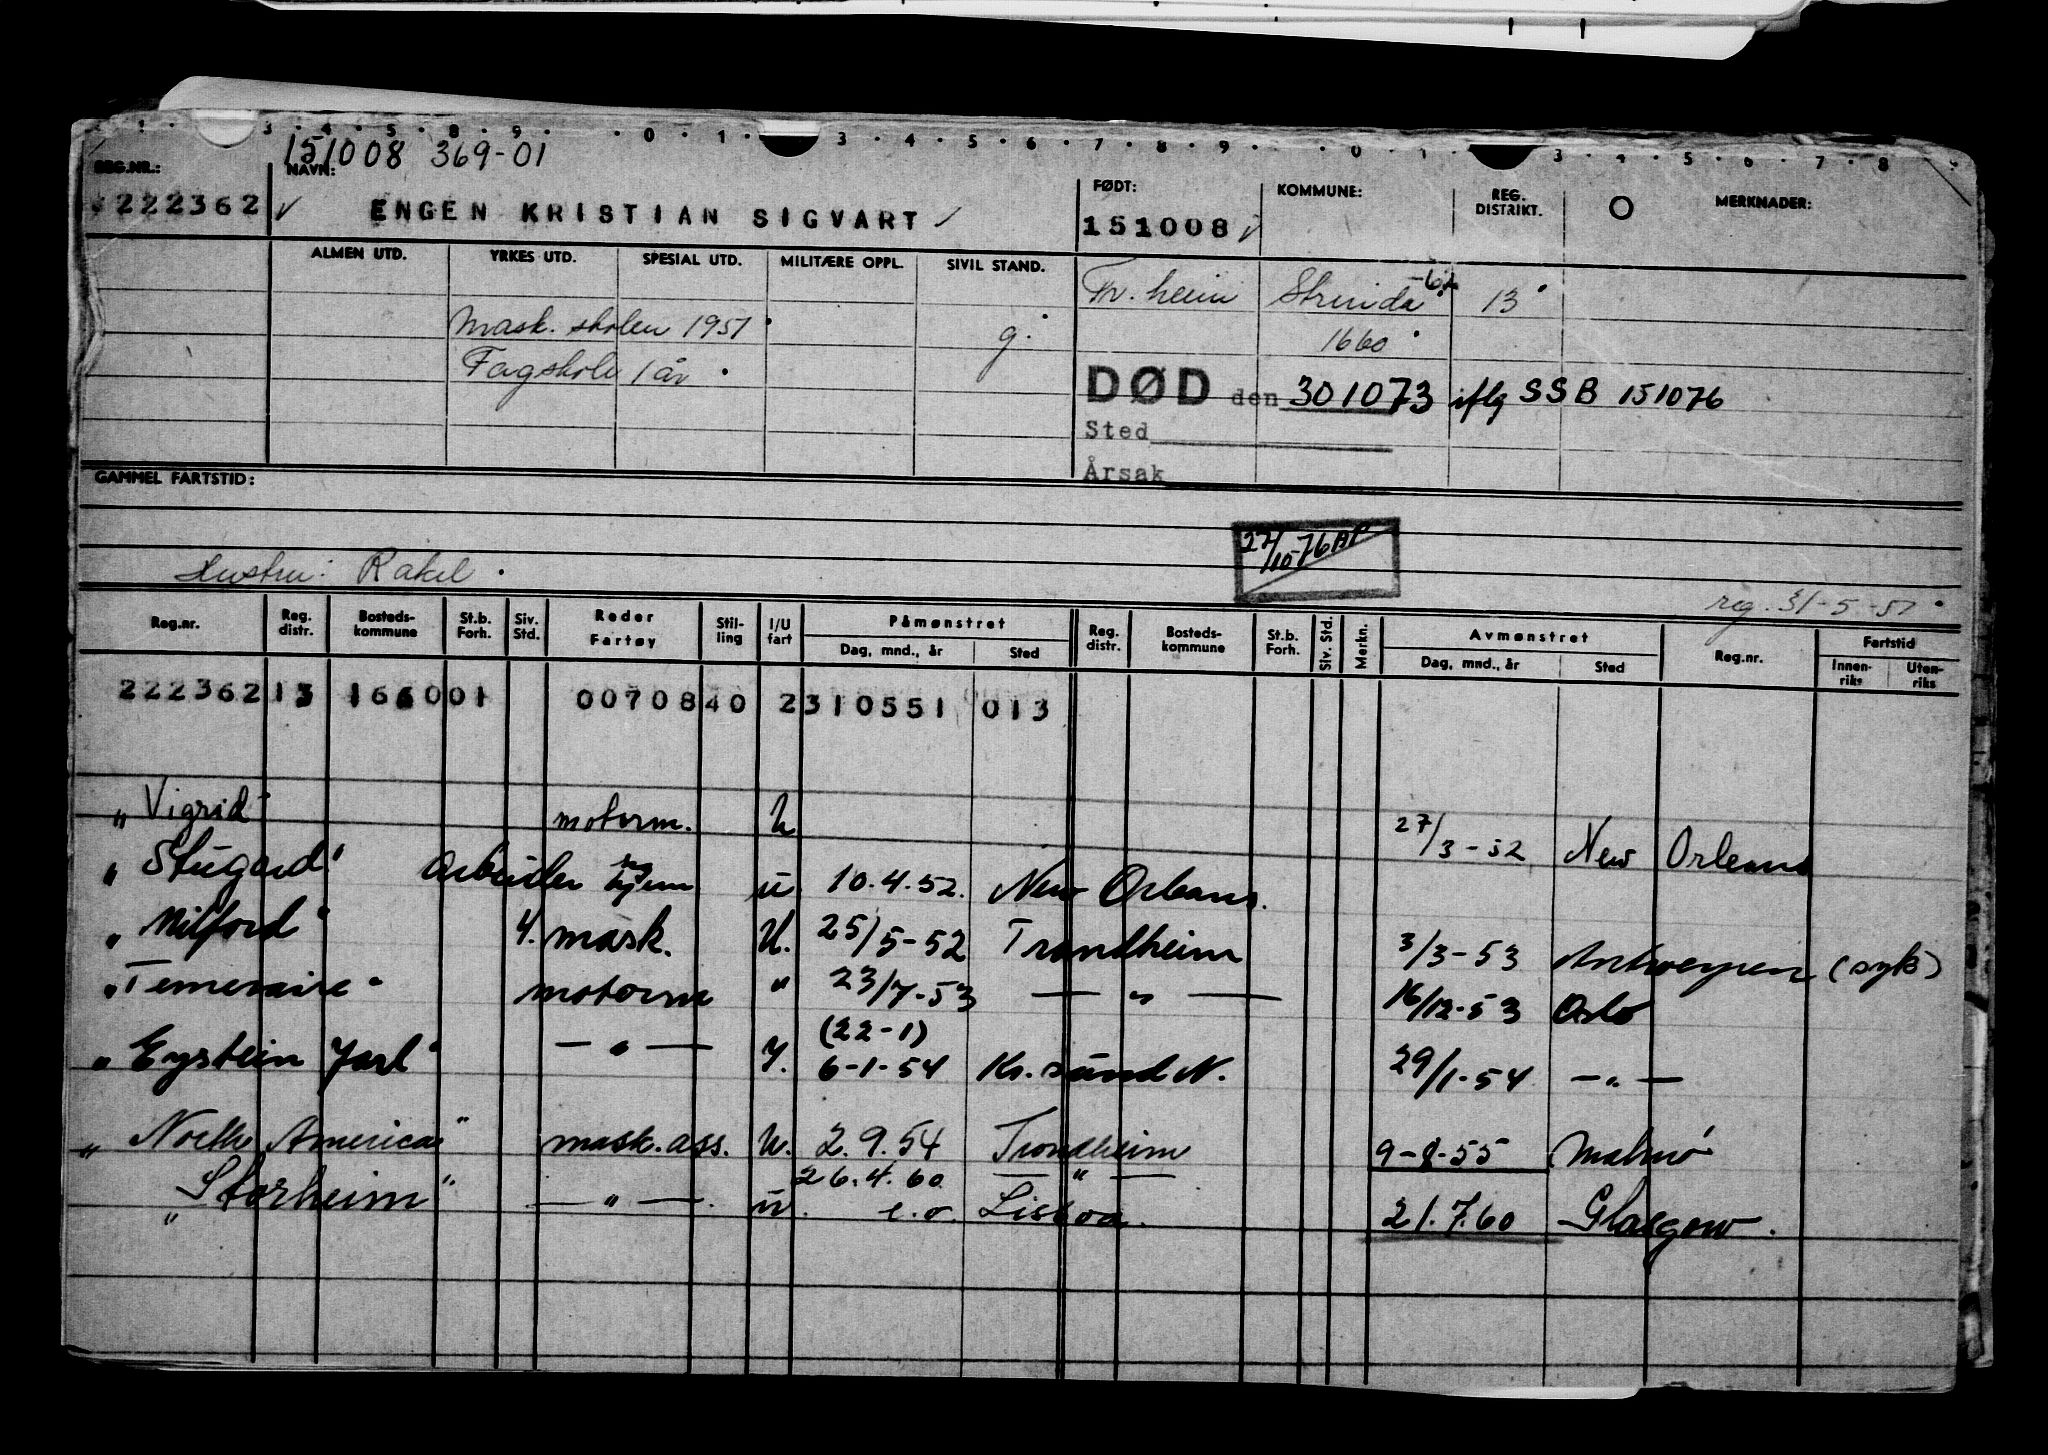 3 . 4 . 5 . 8 . 9 . . 0 . 1 . 3 . 4 . 5 . 6 . 7 . 8 . 9 . . 0 . 1 . 3 . 4 . 5 . 6 . 7 . 8
151008 369-01
REG.NR.: NAVN: FØDT: KOMMUNE: REG. DISTRIKT. O MERKNADER:
222362 ✓ ENGEN KRISTIAN SIGVART 151008 ✓
ALMEN UTD. YRKES UTD. SPESIAL UTD. MILITÆRE OPPL. SIVIL STAND.
Tr.heim Strinda -62 13
Mask. skolen 1951 g. 1660
Fagskole 1 år
DØD den 301073 iflg SSB 151076
Sted
Årsak
GAMMEL FARTSTID:
27/10-76 AP
Hustru: Rakel
reg. 31-5-51
Reg.nr. Reg. distr. Bosteds-kommune St.b. Forh. Siv. Std. Reder Fartøy Stil-ling I/U fart Påmønstret Dag, mnd., år Sted Reg. distr. Bosteds-kommune St.b. Forh. Siv. Std. Merkn. Avmønstret Dag, mnd., år Sted Reg.nr. Fartstid Innen-riks Uten-riks
222362 13 1660 01 00708 40 2 310551 013
"Vigrid" motorm. U 27/3-52 New Orleans
"Stugard" Arbeider hjem u. 10.4.52. New Orleans.
"Milford" 4. mask. U. 25/5-52 Trondheim 3/3-53 Antwerpen (syk)
"Temeraire" motorm " 23/7-53 — " — 16/12-53 Oslo
"Eystein Jarl" — " — I. (22-1) 6-1-54 Kr.sund N. 29/1-54 — " —
"North America" mask. ass. U. 2.9.54 Trondheim 9-8-55 Malmö
"Storheim" — " — u. 26.4.60 — " — e.o. Lisboa. 21.7.60 Glasgow.